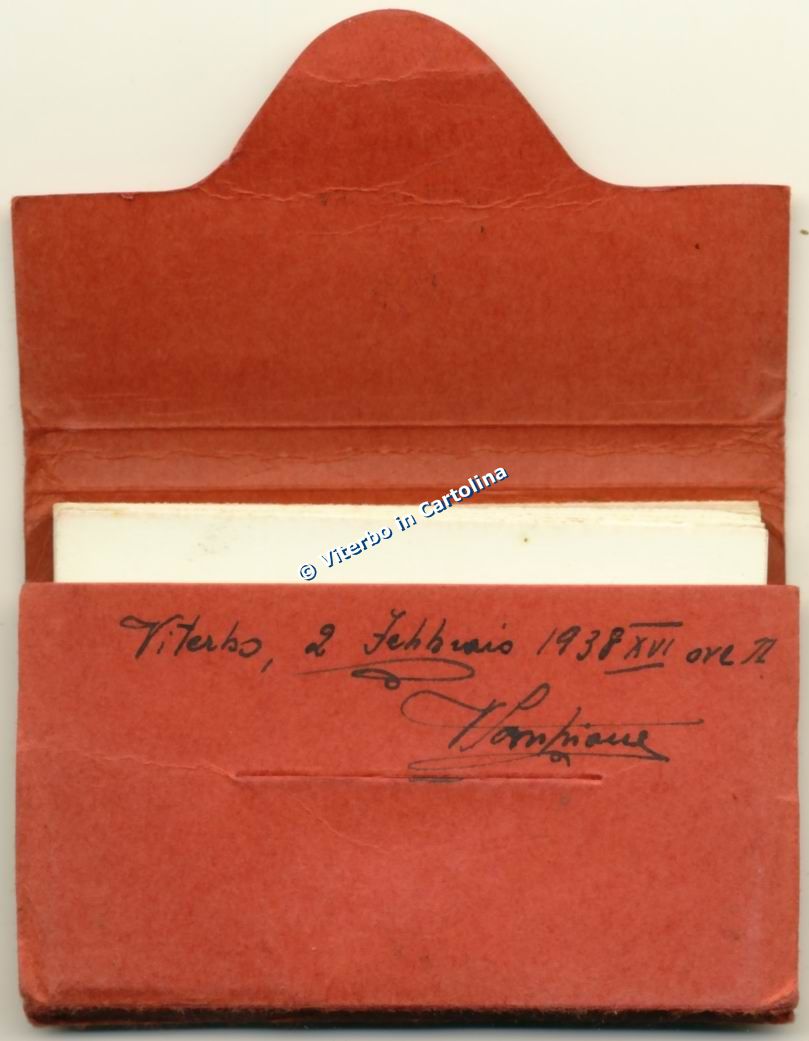 © Viterbo in Cartolina
Viterbo, 2 Febbraio 1938 XVI ore